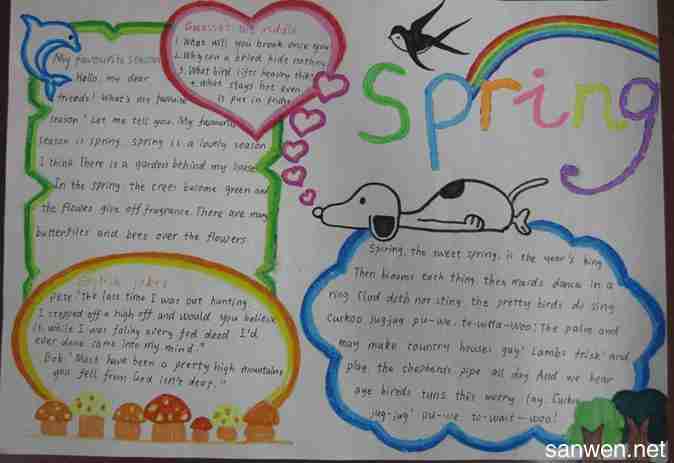 Spring
My favourite season
Hello, my dear
friends! What's me favourite
season? Let me tell you. My favourite
season is spring. spring is a lovely season
I think There is a garden behind my house
In the spring the trees become green and
the flowes give off fragrance. There are many
butterflies and bees over the flowers
Guesses the riddle
1. What will you break once you
2. Why can a bried hide nothing
3. What bird lifts heavny things
4. what stays hot even
is put in fridge
English jokes
Pete "the last time I was out hunting
I stepped off a high off and would you believe
it while I was faling every fed deed I'd
ever done came into my mind."
Bob "Must have been a pretty high mountaine
you fell from God isn't deep."
Spiring, the sweet spring, is the year's king
Then blooms each thing, then maids dance in a
ring Clud doth not sting, the pretty birds do sing
Cuckoo, jug-jug pu-we, to-witta-woo! The palm and
may make country houses gay! Lambs frisk and
play the shepherds pipe all day And we hear
aye bireds tuns this merry lay, Cuckoo
jug-jug! pu-we, to-wait-woo!
sanwen.net